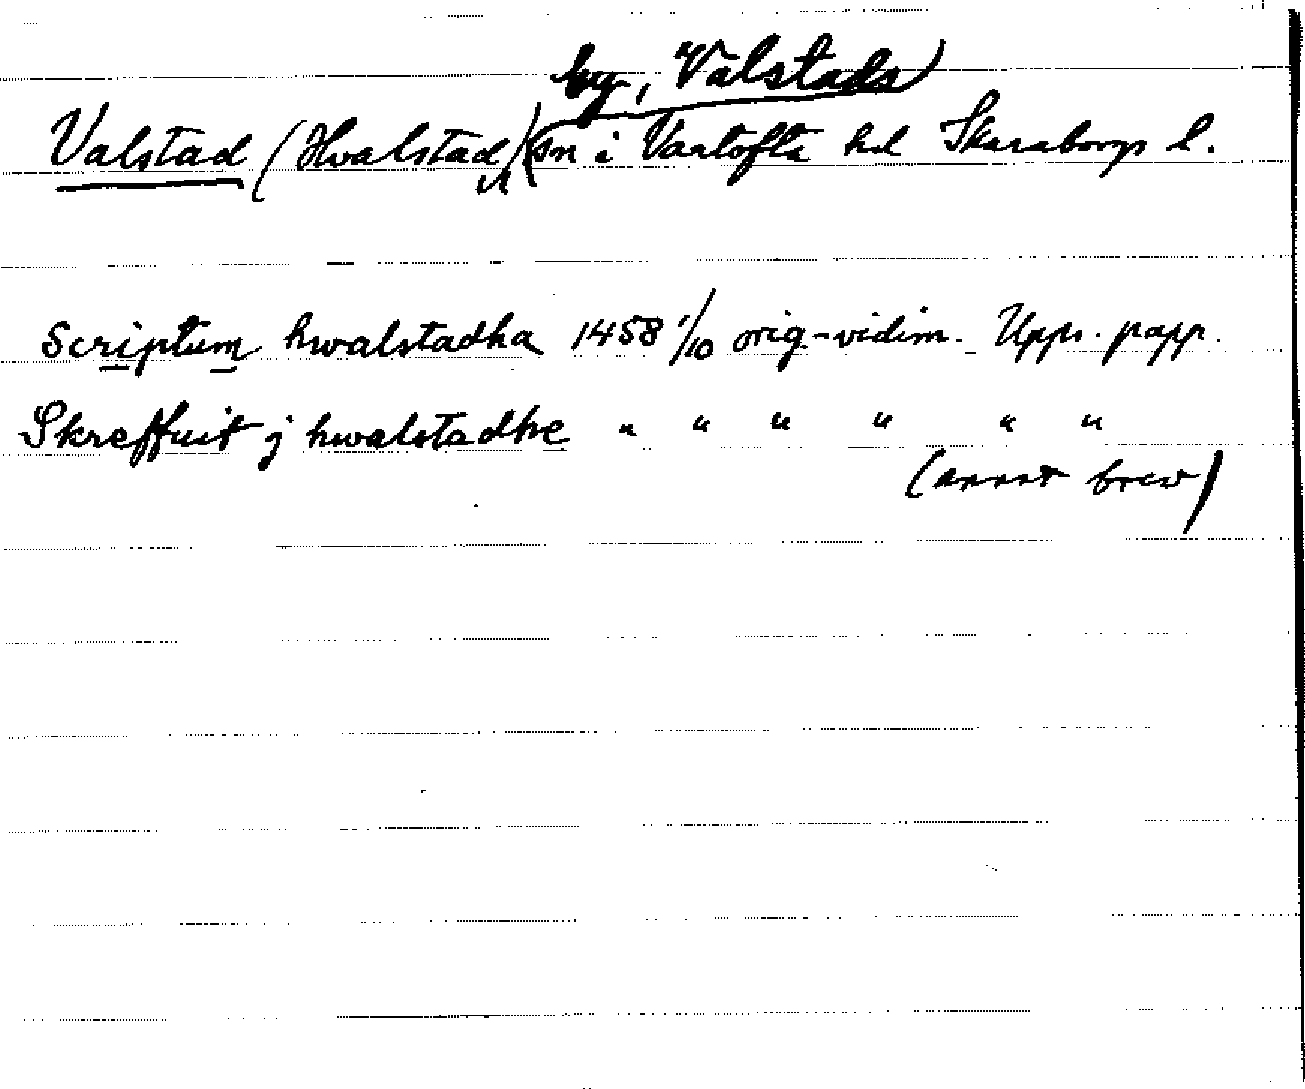 by, Valstads)
Valstad (Hvalstad) (sn i Vartofta hd Skaraborgs l.
Scriptum hwalstadha 1458 1/10 orig-vidim. Upps. papp.
Skreffuit j hwalstadhe " " " " " "
(annat brev)